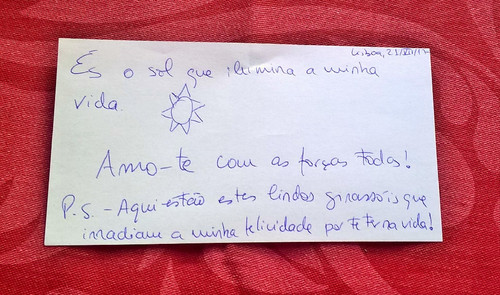 Lisboa, 21/XII/17
És o sol que ilumina a minha
vida.
Amo-te com as forças todas!
P.S. - Aqui estão estes lindos girassóis que
irradiam a minha felicidade por te ter na vida!